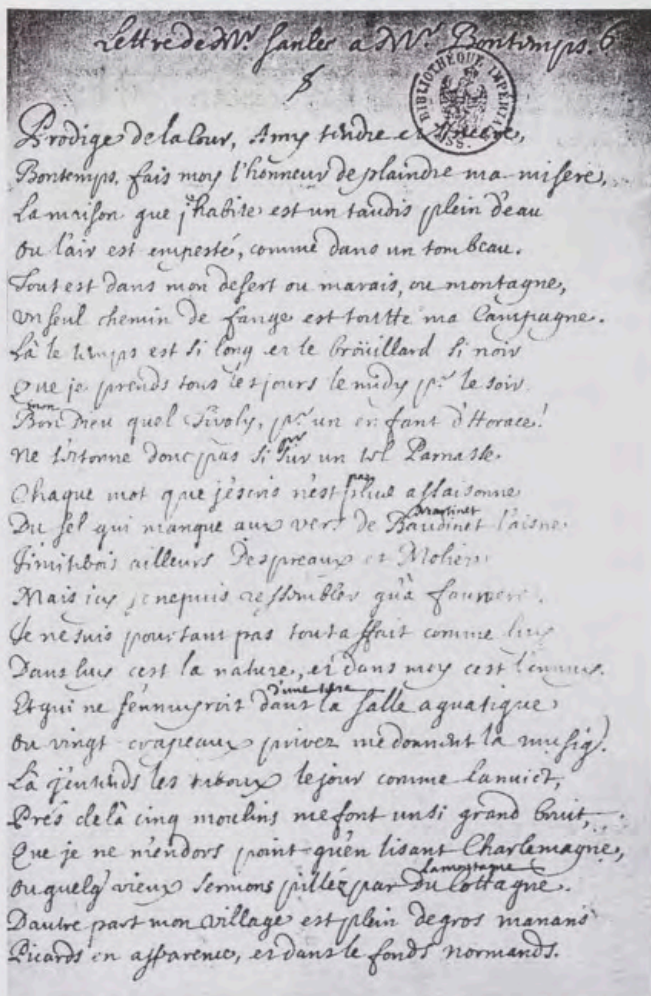 Lettre de Mr. Sanlec a Mr. Bontemps. 6
BIBLIOTHÈQUE IMPÉRIALE MSS.
Prodige de la Cour, Amy tendre et sincere,
Bontemps, fais moy l'honneur de plaindre ma misere,
La maison que j'habite est un taudis plein d'eau
Ou l'air est empesté, comme dans un tombeau.
Tout est dans mon desert ou marais, ou montagne,
Un seul chemin de fange est toutte ma Campagne.
Là le temps est si long et le broüillard si noir
Que je prends tous les jours le midy pr. le soir
mon
Bon Dieu quel Tivoly, pr. un enfant d'Horace!
Ne t'etonne donc pas si sur un tel Parnasse
pas
Chaque mot que j'escris n'est plus assaisonne
Du sel qui manque aux vers de Baudinet l'aisne
J'imitebois ailleurs Despreaux et Moliere
Mais icy je ne puis ressembler qu'à
Je ne suis pourtant pas tout a ffait comme luy
Dans luy cest la nature, et dans moy cest l'ennuy.
d'une
Et qui ne s'ennuyroit dans la salle aquatique
Ou vingt crapeaux privez me donnent la musiq.
Là j'entends les hiboux le jour comme la nuict,
Prés de là cinq moulins me font un si grand bruit,
Que je ne m'endors point qu'en lisant Charlemagne,
Ou quelq. vieux sermons pillez par Du Cottagne.
Dautre part mon village est plein de gros manans
Picards en apparence, et dans le fonds normands.